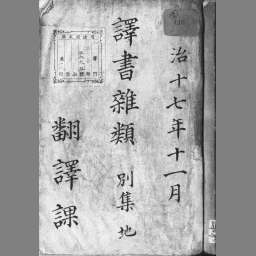 治十七年十一月
譯書雜類 別集 地
翻譯課